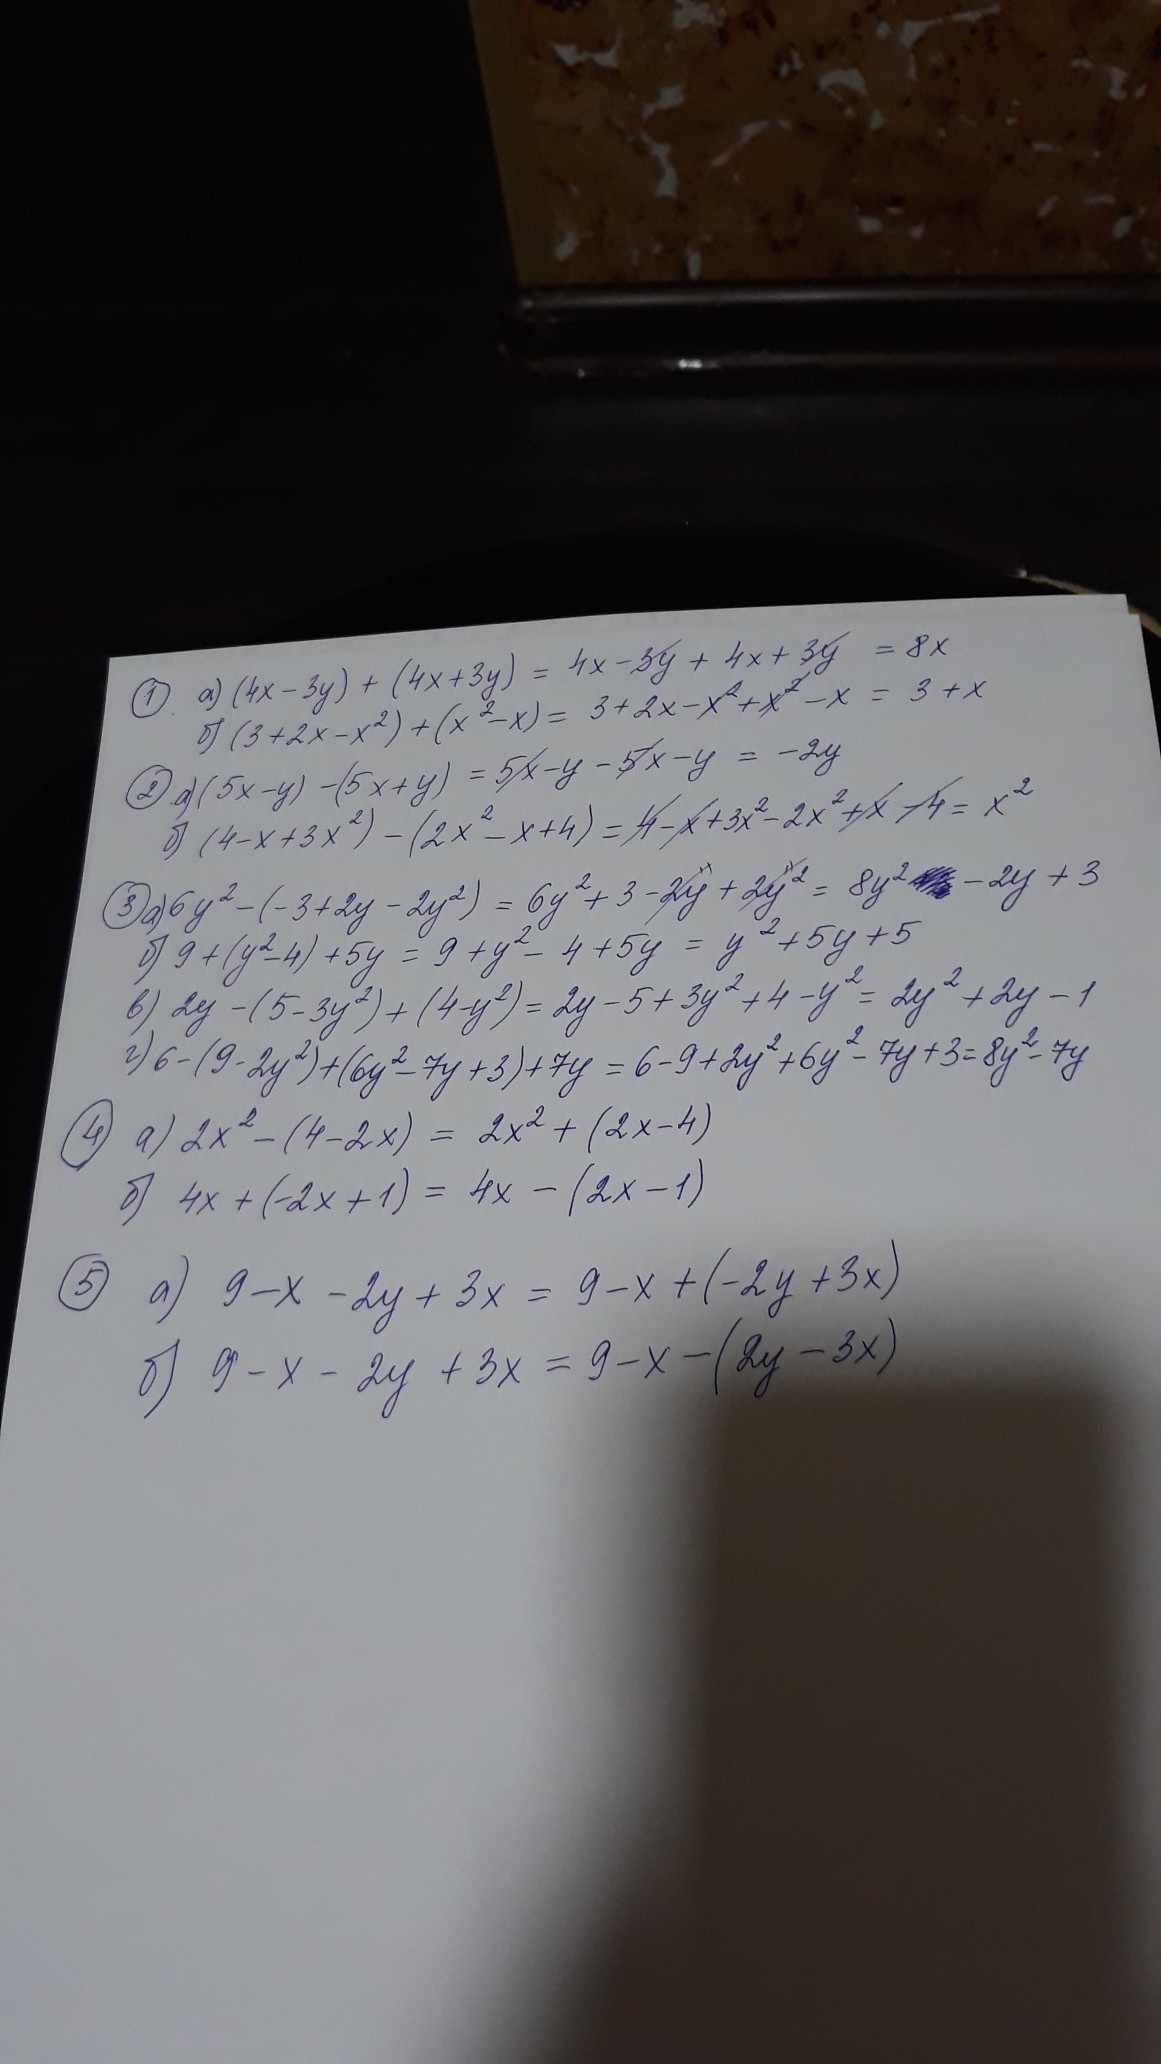 ① а) (4x - 3y) + (4x + 3y) = 4x - 3y + 4x + 3y = 8x
б) (3 + 2x - x²) + (x² - x) = 3 + 2x - x² + x² - x = 3 + x
② а) (5x - y) - (5x + y) = 5x - y - 5x - y = -2y
б) (4 - x + 3x²) - (2x² - x + 4) = 4 - x + 3x² - 2x² + x - 4 = x²
③ а) 6y² - (-3 + 2y - 2y²) = 6y² + 3 - 2y + 2y² = 8y² - 2y + 3
б) 9 + (y² - 4) + 5y = 9 + y² - 4 + 5y = y² + 5y + 5
в) 2y - (5 - 3y²) + (4 - y²) = 2y - 5 + 3y² + 4 - y² = 2y² + 2y - 1
г) 6 - (9 - 2y²) + (6y² - 7y + 3) + 7y = 6 - 9 + 2y² + 6y² - 7y + 3 = 8y² - 7y
④ а) 2x² - (4 - 2x) = 2x² + (2x - 4)
б) 4x + (-2x + 1) = 4x - (2x - 1)
⑤ а) 9 - x - 2y + 3x = 9 - x + (-2y + 3x)
б) 9 - x - 2y + 3x = 9 - x - (2y - 3x)